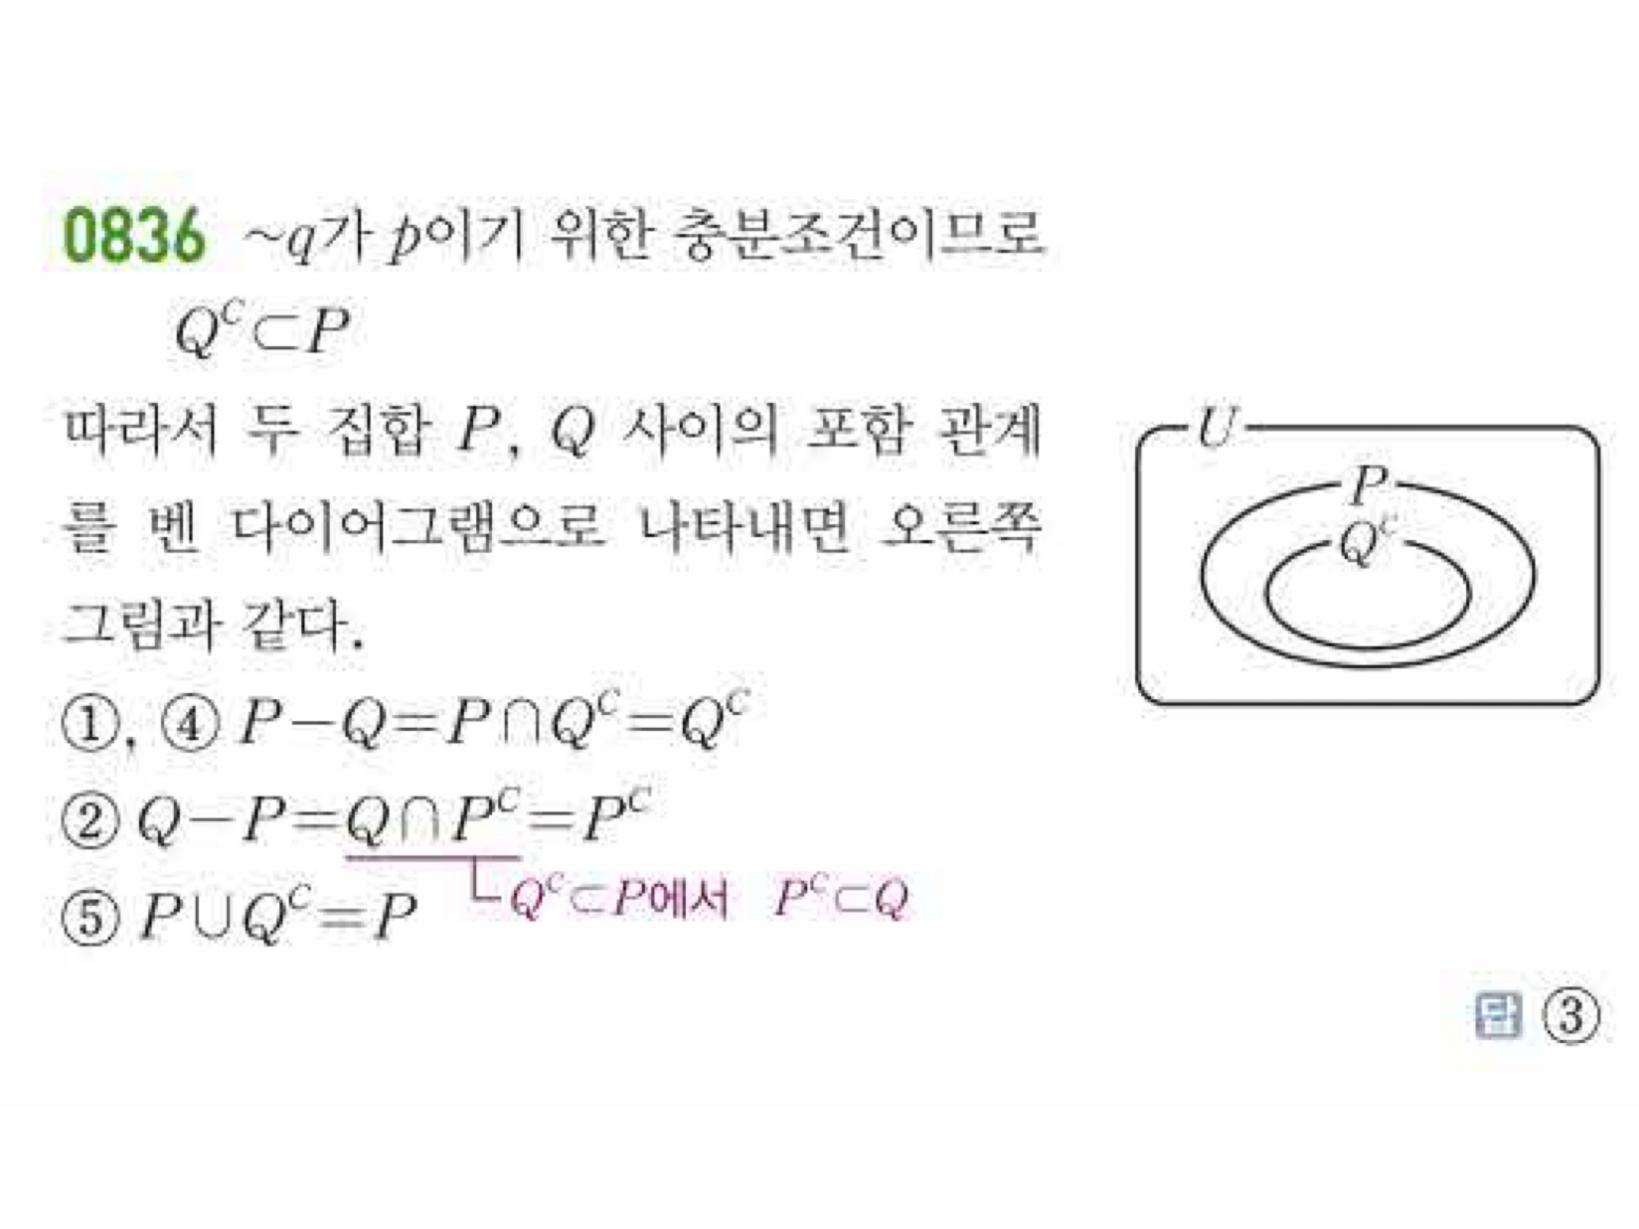 0836 ~q가 p이기 위한 충분조건이므로
Q^C⊂P
따라서 두 집합 P, Q 사이의 포함 관계
를 벤 다이어그램으로 나타내면 오른쪽
그림과 같다.
U
P
Q^C
①, ④ P-Q=P∩Q^C=Q^C
② Q-P=Q∩P^C=P^C
Q^C⊂P에서 P^C⊂Q
⑤ P∪Q^C=P
답 ③